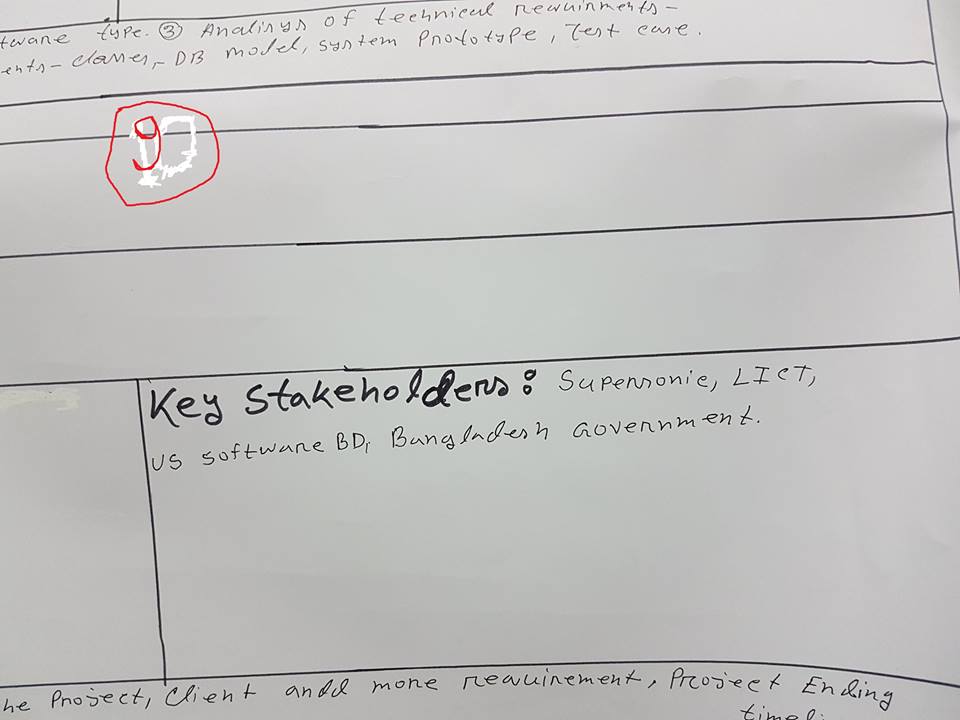 tware type. ③ Analisys of technical requirments-
ents- classes,- DB model, system Prototype, Test case.
9
Key Stakeholders: Supersonie, LICT,
US software BD, Bangladesh Government.
he Project, Client andd more requirement, Project Ending